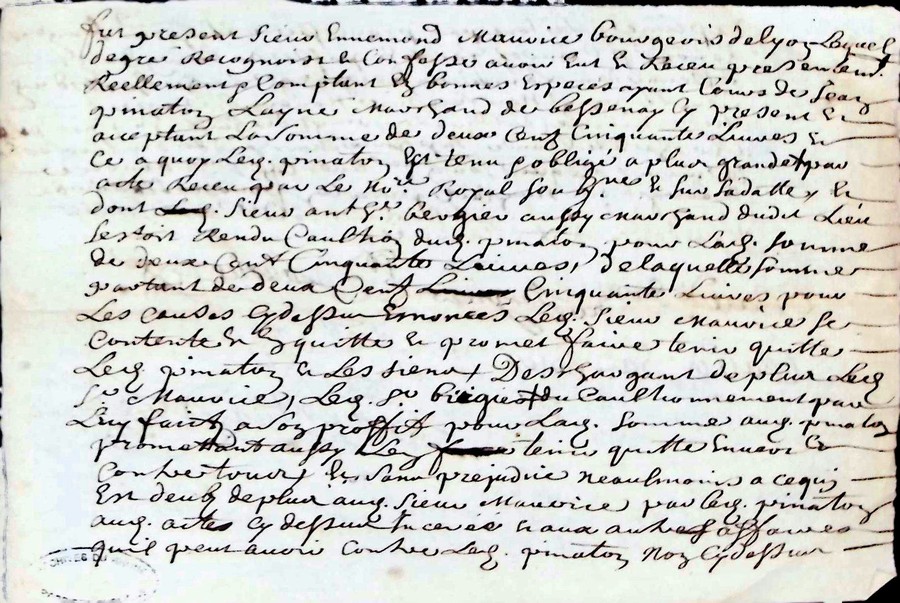 fut present Sieur Ennemond Maurice bourgeois de lyon Lequel
de gré Recognoist & Confesse avoir Eut & Receu presentemt
Reellement & Comptant En bonnes Especes ayant Cours de Jean
pinaton Layne Marchand de bessenay Cy present &
aceptant La Somme de deux Cent Cinquante Livres &
Ce a quoy Led. pinaton Est tenu & obligé a plus grande par
acte Receu par Le Nore Royal Soubne & sur sa datte &
dont Sieur anthe bergier aussy Marchand dudit Lieu
Sestoit Rendu Caulthion dud. pinaton pour Lad. Somme
de deux Cent Cinquante Livres, de laquelle Somme
partant de deux Cent Cinquante Livres pour
Les Causes Cy dessus Enoncées Led. Sieur Maurice se
Contente & En quitte & promet faire tenir quitte
Led. pinaton & Les siens, Deschargant de plus Led.
Sr Maurice, Led. Sr bergier du Caulthionnement par
Luy fait a son proffit pour Lad. Somme aud. pinaton
promettant aussy Len tenir quitte Envers &
Contre tous, & sans prejudice neaulmoins a ce quis
Est deub de plus aud. Sieur Maurice par Led. pinaton
aud. actes Cy dessus & aux autres affaires
quil peut avoir Contre Led. pinaton Non Cy dessus